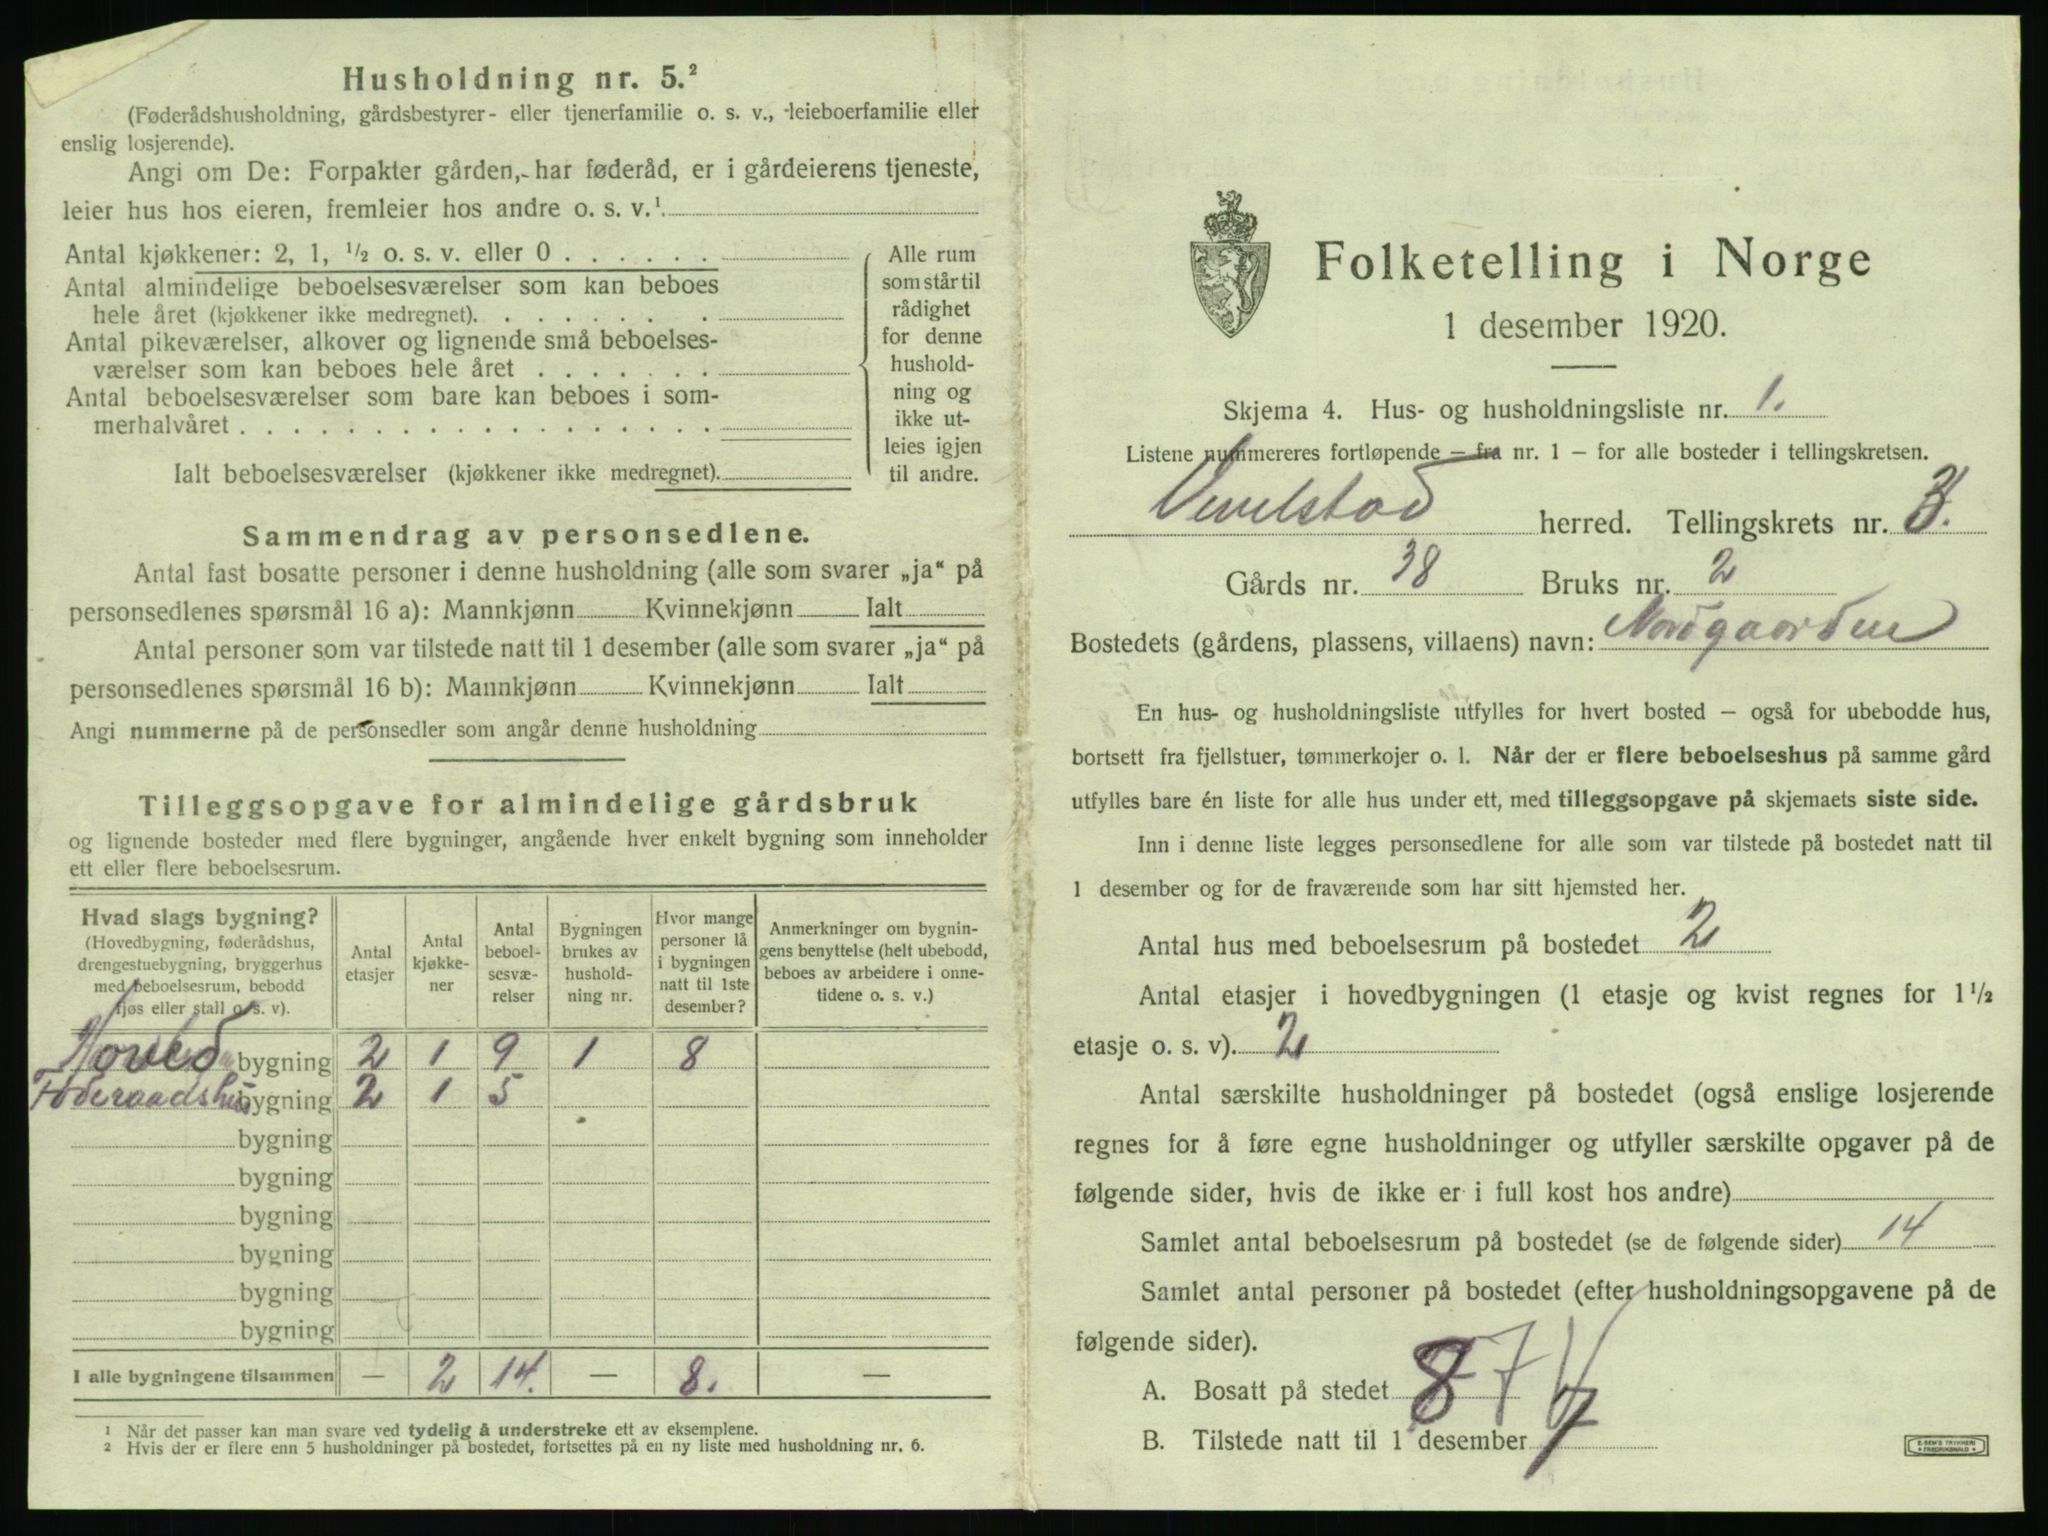 Husholdning nr. 5.²
(Føderådshusholdning, gårdsbestyrer- eller tjenerfamilie o. s. v., leieboerfamilie eller
enslig losjerende).
Angi om De: Forpakter gården, har føderåd, er i gårdeierens tjeneste,
leier hus hos eieren, fremleier hos andre o. s. v.¹
Antal kjøkkener: 2, 1, ½ o. s. v. eller 0
Antal almindelige beboelsesværelser som kan beboes
hele året (kjøkkener ikke medregnet)
Antal pikeværelser, alkover og lignende små beboelses-
værelser som kan beboes hele året
Antal beboelsesværelser som bare kan beboes i som-
merhalvåret
Ialt beboelsesværelser (kjøkkener ikke medregnet)
Alle rum
som står til
rådighet
for denne
hushold-
ning og
ikke ut-
leies igjen
til andre.
Sammendrag av personsedlene.
Antal fast bosatte personer i denne husholdning (alle som svarer „ja“ på
personsedlenes spørsmål 16 a): Mannkjønn Kvinnekjønn Ialt
Antal personer som var tilstede natt til 1 desember (alle som svarer „ja“ på
personsedlenes spørsmål 16 b): Mannkjønn Kvinnekjønn Ialt
Angi nummerne på de personsedler som angår denne husholdning
Tilleggsopgave for almindelige gårdsbruk
og lignende bosteder med flere bygninger, angående hver enkelt bygning som inneholder
ett eller flere beboelsesrum.
Hvad slags bygning?
(Hovedbygning, føderådshus,
drengestuebygning, bryggerhus
med beboelsesrum, bebodd
fjøs eller stall o. s. v).
Antal
etasjer
Antal
kjøkke-
ner
Antal
beboel-
sesvæ-
relser
Bygningen
brukes av
hushold-
ning nr.
Hvor mange
personer lå
i bygningen
natt til 1ste
desember?
Anmerkninger om bygnin-
gens benyttelse (helt ubebodd,
beboes av arbeidere i onne-
tidene o. s. v.)
Hoved bygning 2 1 9 1 8
Føderaadshus bygning 2 1 5
bygning
bygning
bygning
bygning
bygning
bygning
I alle bygningene tilsammen — 2 14. — 8. —
¹ Når det passer kan man svare ved tydelig å understreke ett av eksemplene.
² Hvis der er flere enn 5 husholdninger på bostedet, fortsettes på en ny liste med husholdning nr. 6.
Folketelling i Norge
1 desember 1920.
Skjema 4. Hus- og husholdningsliste nr. 1.
Listene nummereres fortløpende — fra nr. 1 — for alle bosteder i tellingskretsen.
Vevelstad herred. Tellingskrets nr. 3.
Gårds nr. 38 Bruks nr. 2
Bostedets (gårdens, plassens, villaens) navn: Nordgaarden
En hus- og husholdningsliste utfylles for hvert bosted — også for ubebodde hus,
bortsett fra fjellstuer, tømmerkojer o. l. Når der er flere beboelseshus på samme gård
utfylles bare én liste for alle hus under ett, med tilleggsopgave på skjemaets siste side.
Inn i denne liste legges personsedlene for alle som var tilstede på bostedet natt til
1 desember og for de fraværende som har sitt hjemsted her.
Antal hus med beboelsesrum på bostedet 2
Antal etasjer i hovedbygningen (1 etasje og kvist regnes for 1½
etasje o. s. v). 2
Antal særskilte husholdninger på bostedet (også enslige losjerende
regnes for å føre egne husholdninger og utfyller særskilte opgaver på de
følgende sider, hvis de ikke er i full kost hos andre)
Samlet antal beboelsesrum på bostedet (se de følgende sider) 14
Samlet antal personer på bostedet (efter husholdningsopgavene på de
følgende sider).
A. Bosatt på stedet 8 7
B. Tilstede natt til 1 desember 7